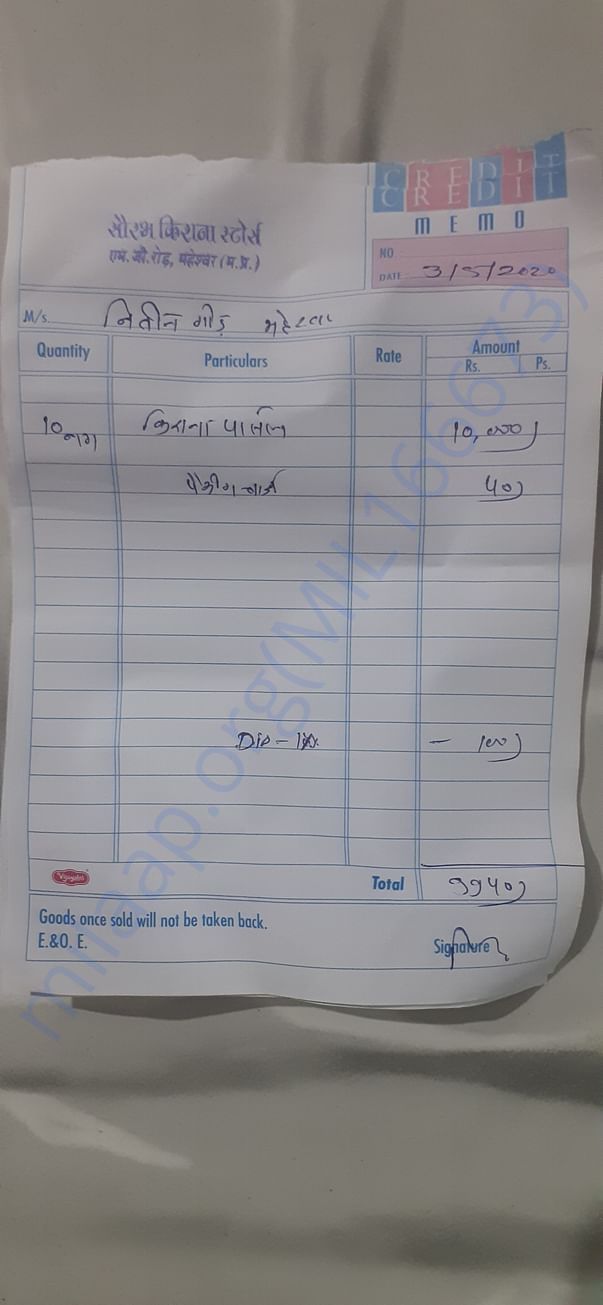 CREDIT
CREDIT
MEMO
सौरभ किराना स्टोर्स
एम. जी. रोड़, महेश्वर (म.प्र.)
NO
DATE: 3/5/2020
M/s. नितीन गौड़ महेश्वर
Quantity Particulars Rate Amount
Rs. Ps.
10 नग किराना पार्सल 10,000)
पैकींग चार्ज 40)
Dis - 1% - 100)
Total 9940)
Goods once sold will not be taken back.
E.&O. E. Signature
milaap.org(MIL166673)